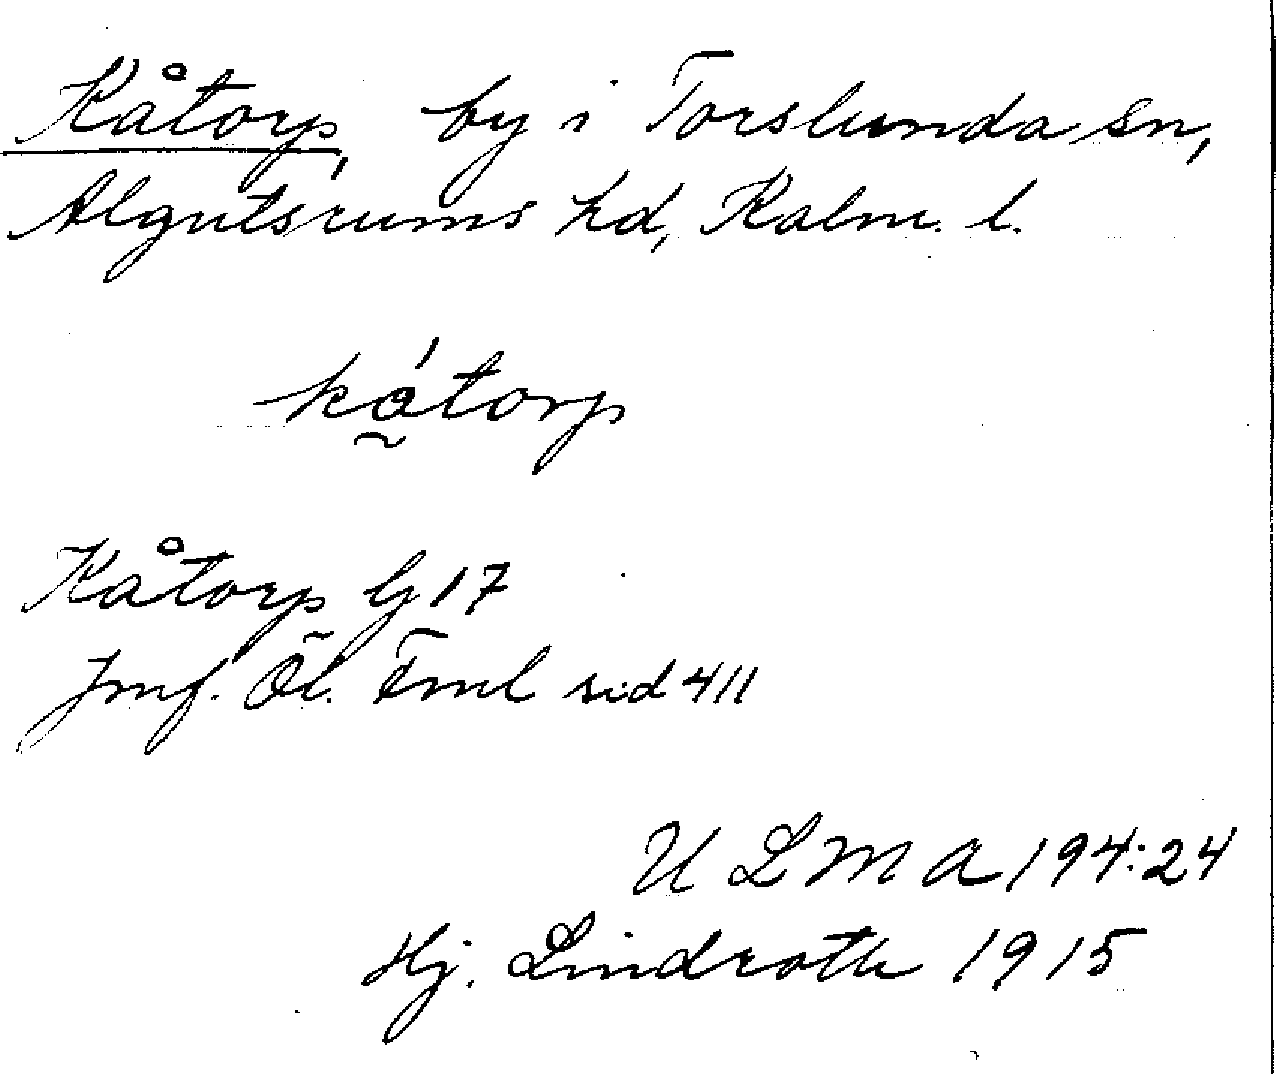 Kåtorp, by i Torslunda sn,
Algutsrums hd, Kalm. l.
kátorp
Kåtorp G 17
Jmf. Öl. Fml sid 411
ULMA 194:24
Hj. Lindroth 1915